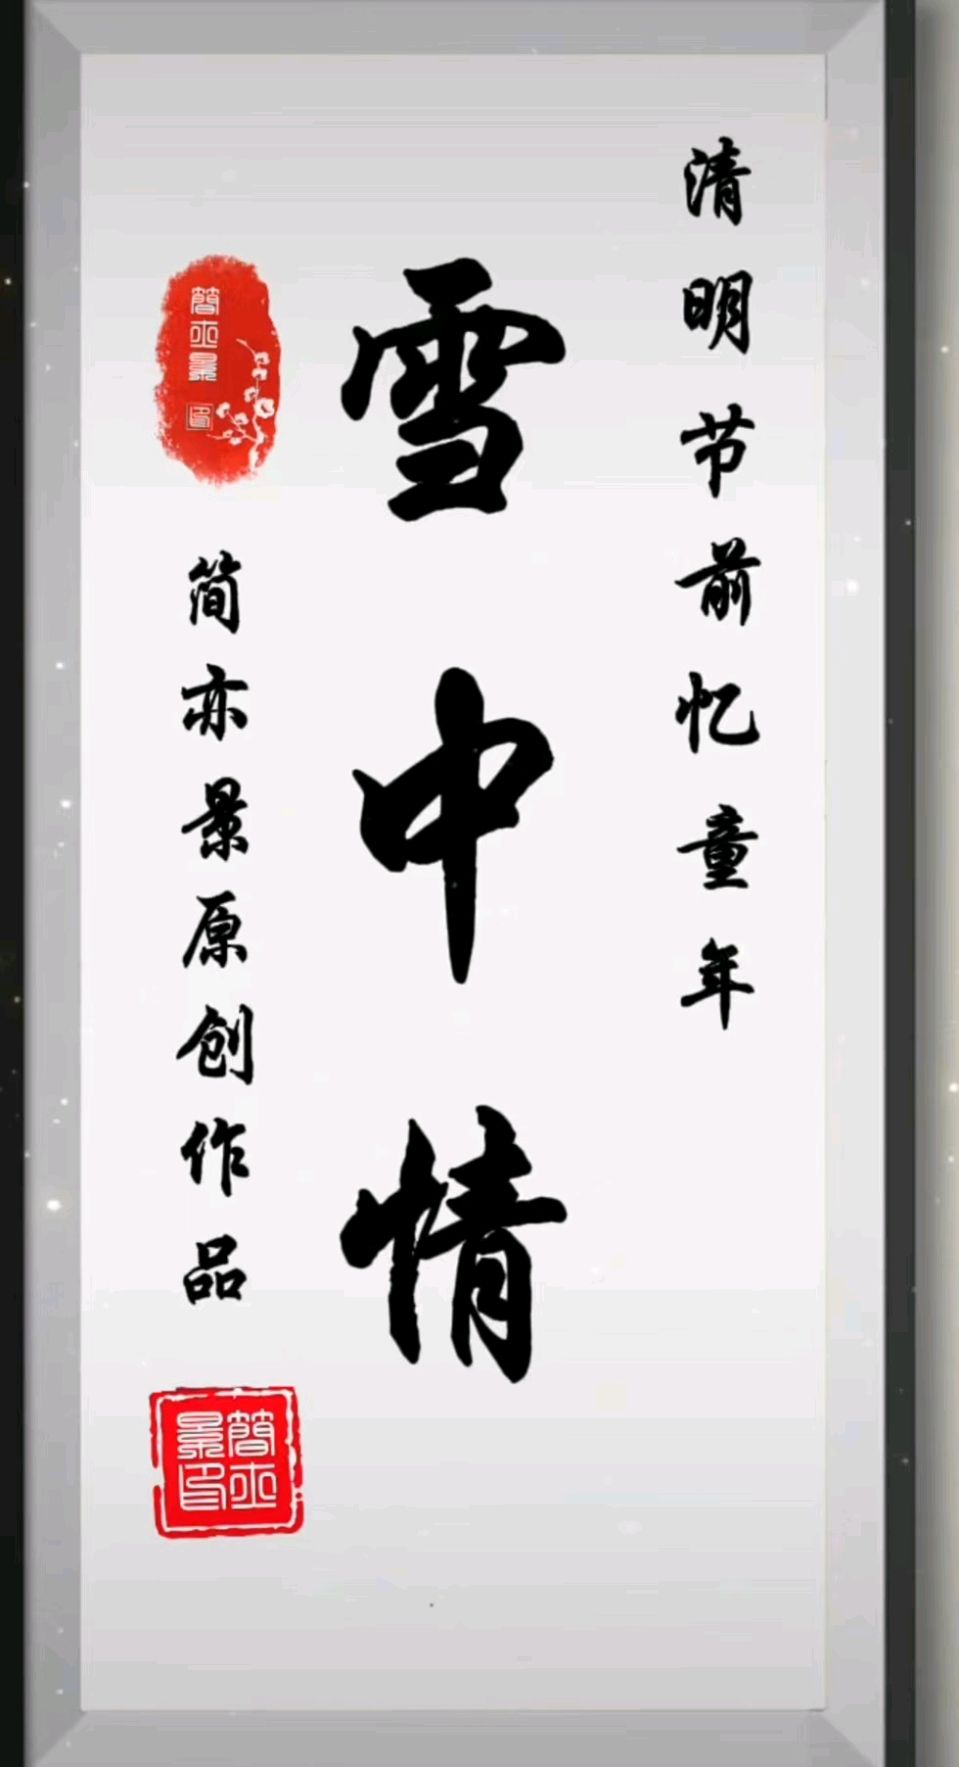 清明节前忆童年
雪中情
簡亦景
印
简亦景原创作品
簡亦
景印